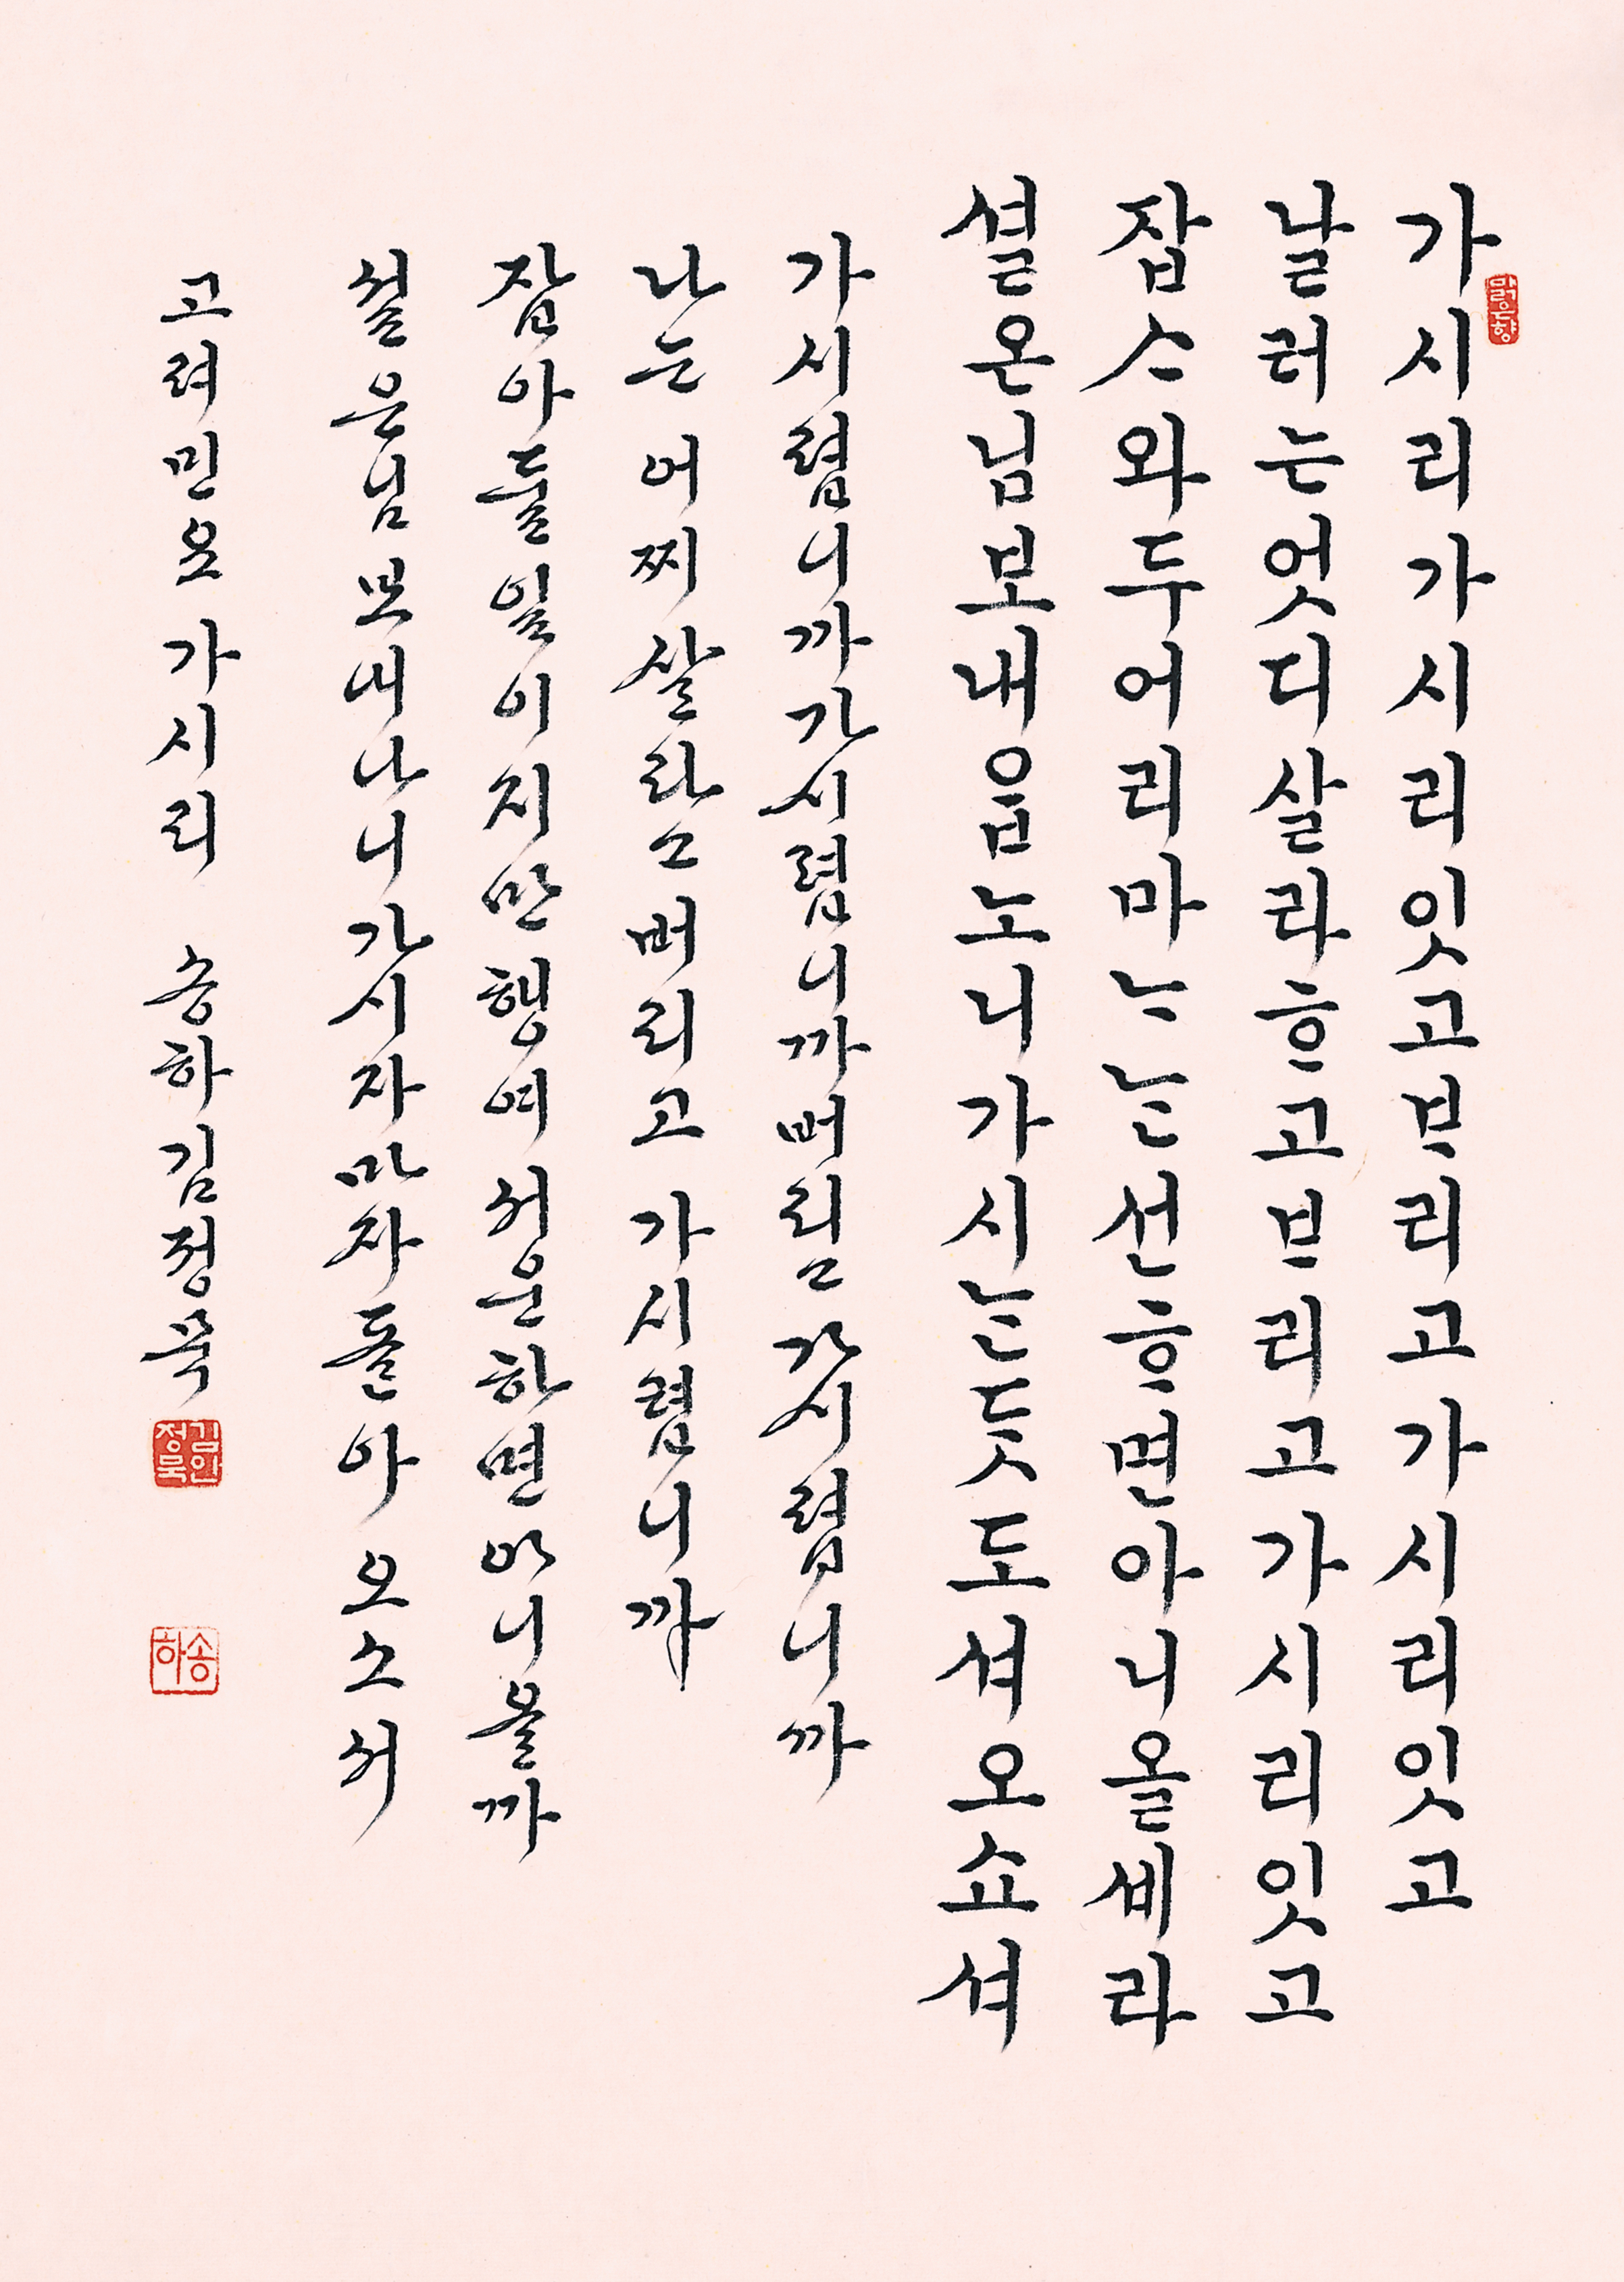 맑은향
가시리가시리잇고ᄇᆞ리고가시리잇고
날러는엇디살라ᄒᆞ고ᄇᆞ리고가시리잇고
잡ᄉᆞ와두어리마ᄂᆞᄂᆞᆫ선ᄒᆞ면아니올셰라
셜온님보내ᄋᆞᆸ노니가시ᄂᆞᆫᄃᆞᆺ도셔오쇼셔
가시렵니까가시렵니까버리고가시렵니까
나는 어찌살라고버리고 가시렵니까
잡아둘일이지만행여서운하면아니올까
설은님보내나니가시자마자돌아 오소서
고려민요 가시리 송하김정묵
김정묵인
송하